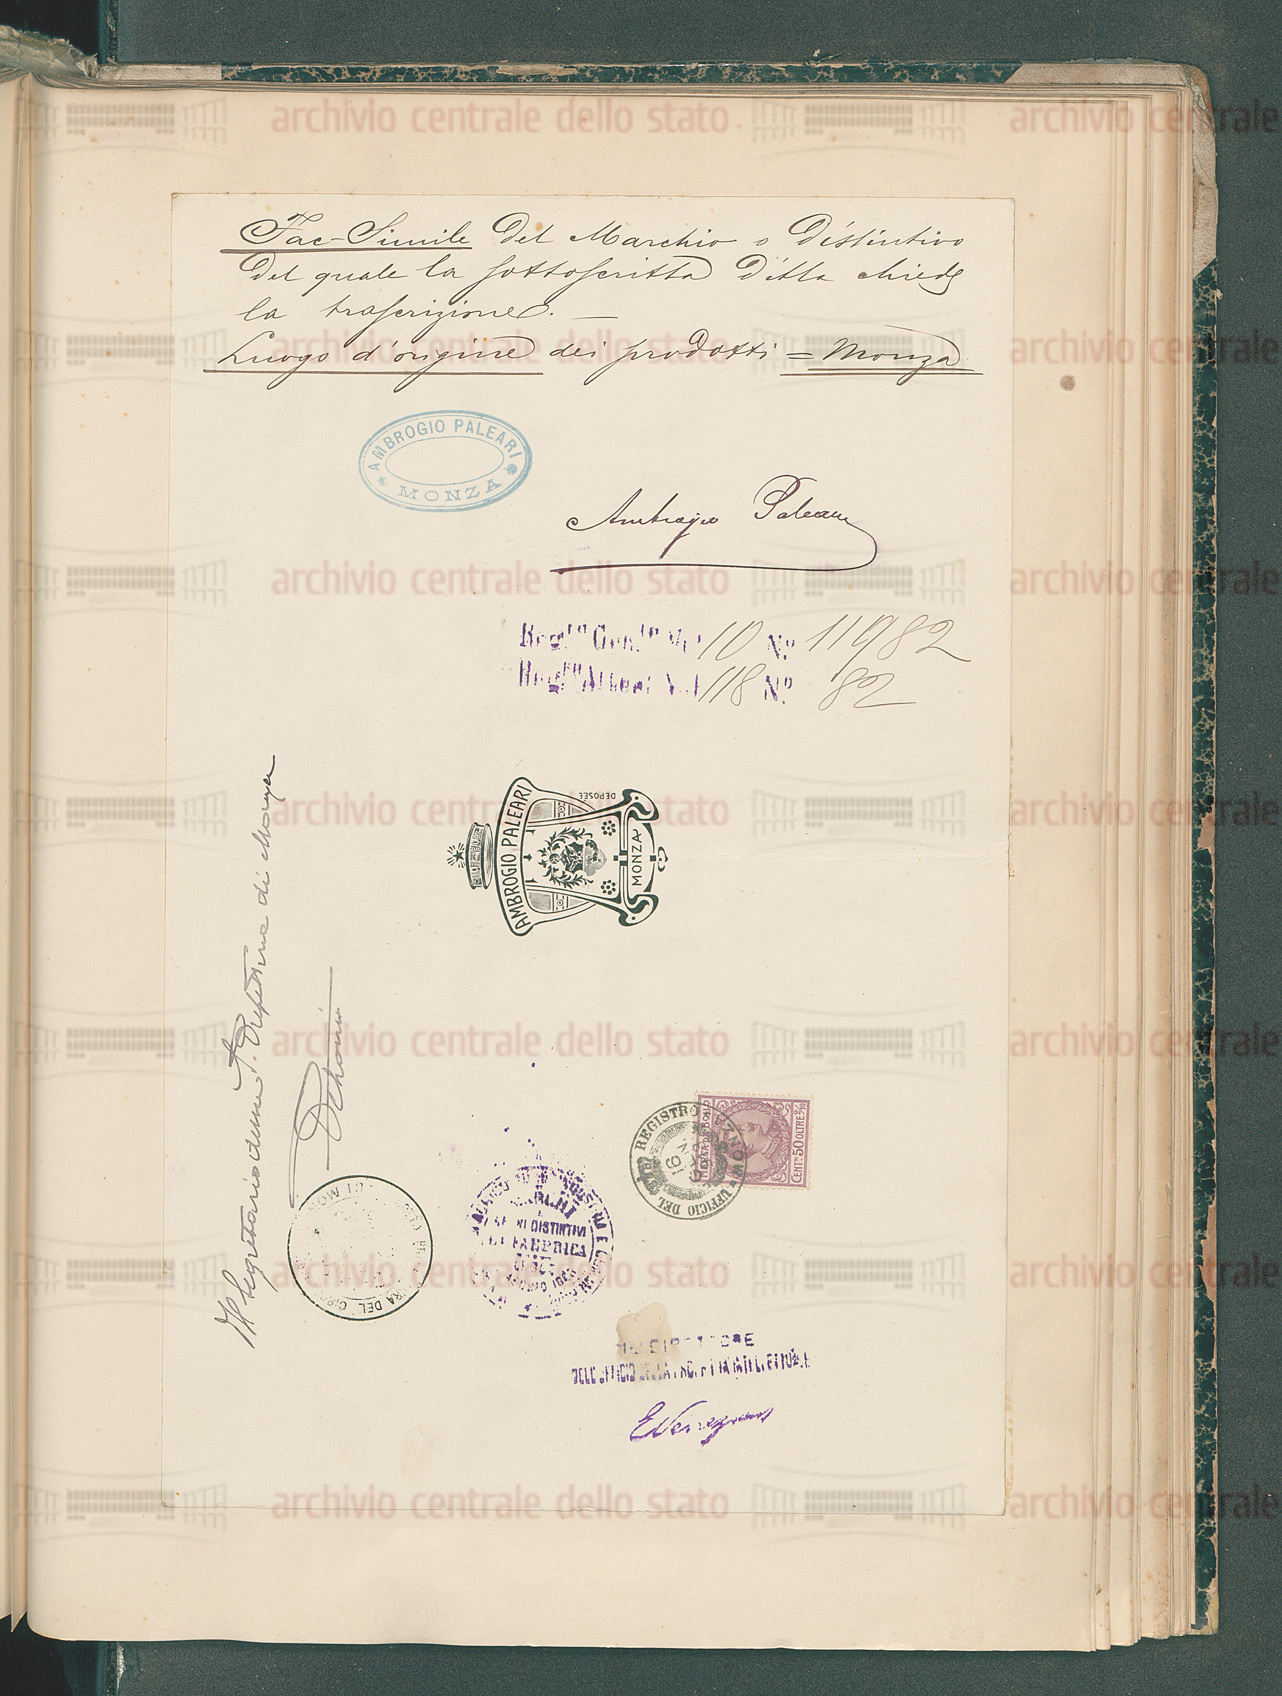 Fac-Simile del Marchio o distintivo
del quale la sottoscritta ditta chiede
la trascrizione. —
Luogo d'origine dei prodotti = Monza
AMBROGIO PALEARI
MONZA
Ambrogio Paleari
Reg. Gen. Vol. 10 N.º 11982
Reg. Vol. 118 N.º 82
DEPOSEE
AMBROGIO PALEARI
MONZA
Il Segretario della S. Prefettura di Monza
REGISTRO
MONZA
UFFICIO DEL
CENT. 50 OLTRE 2/10
DISTINTIVI
DI FABBRICA
IL DIRETTORE
DELL'UFFICIO DELLA PROPRIETÀ INTELLETTUALE
archivio centrale dello stato